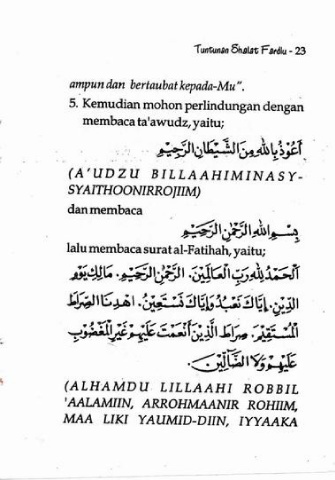 Tuntunan Shalat Fardlu - 23
ampun dan bertaubat kepada-Mu".
5. Kemudian mohon perlindungan dengan
membaca ta'awudz, yaitu;
أَعُوْذُ بِاللّٰهِ مِنَ الشَّيْطَانِ الرَّجِيْمِ
(A'UDZU BILLAAHIMINASY-
SYAITHOONIRROJIIM)
dan membaca
بِسْمِ اللّٰهِ الرَّحْمٰنِ الرَّحِيْمِ
lalu membaca surat al-Fatihah, yaitu;
اَلْحَمْدُ لِلّٰهِ رَبِّ الْعَالَمِيْنَ. الرَّحْمٰنِ الرَّحِيْمِ. مَالِكِ يَوْمِ
الدِّيْنِ. إِيَّاكَ نَعْبُدُ وَإِيَّاكَ نَسْتَعِيْنُ. اِهْدِنَا الصِّرَاطَ
الْمُسْتَقِيْمَ. صِرَاطَ الَّذِيْنَ أَنْعَمْتَ عَلَيْهِمْ غَيْرِ الْمَغْضُوْبِ
عَلَيْهِمْ وَلَا الضَّآلِّيْنَ.
(ALHAMDU LILLAAHI ROBBIL
'AALAMIIN, ARROHMAANIR ROHIIM,
MAA LIKI YAUMID-DIIN, IYYAAKA